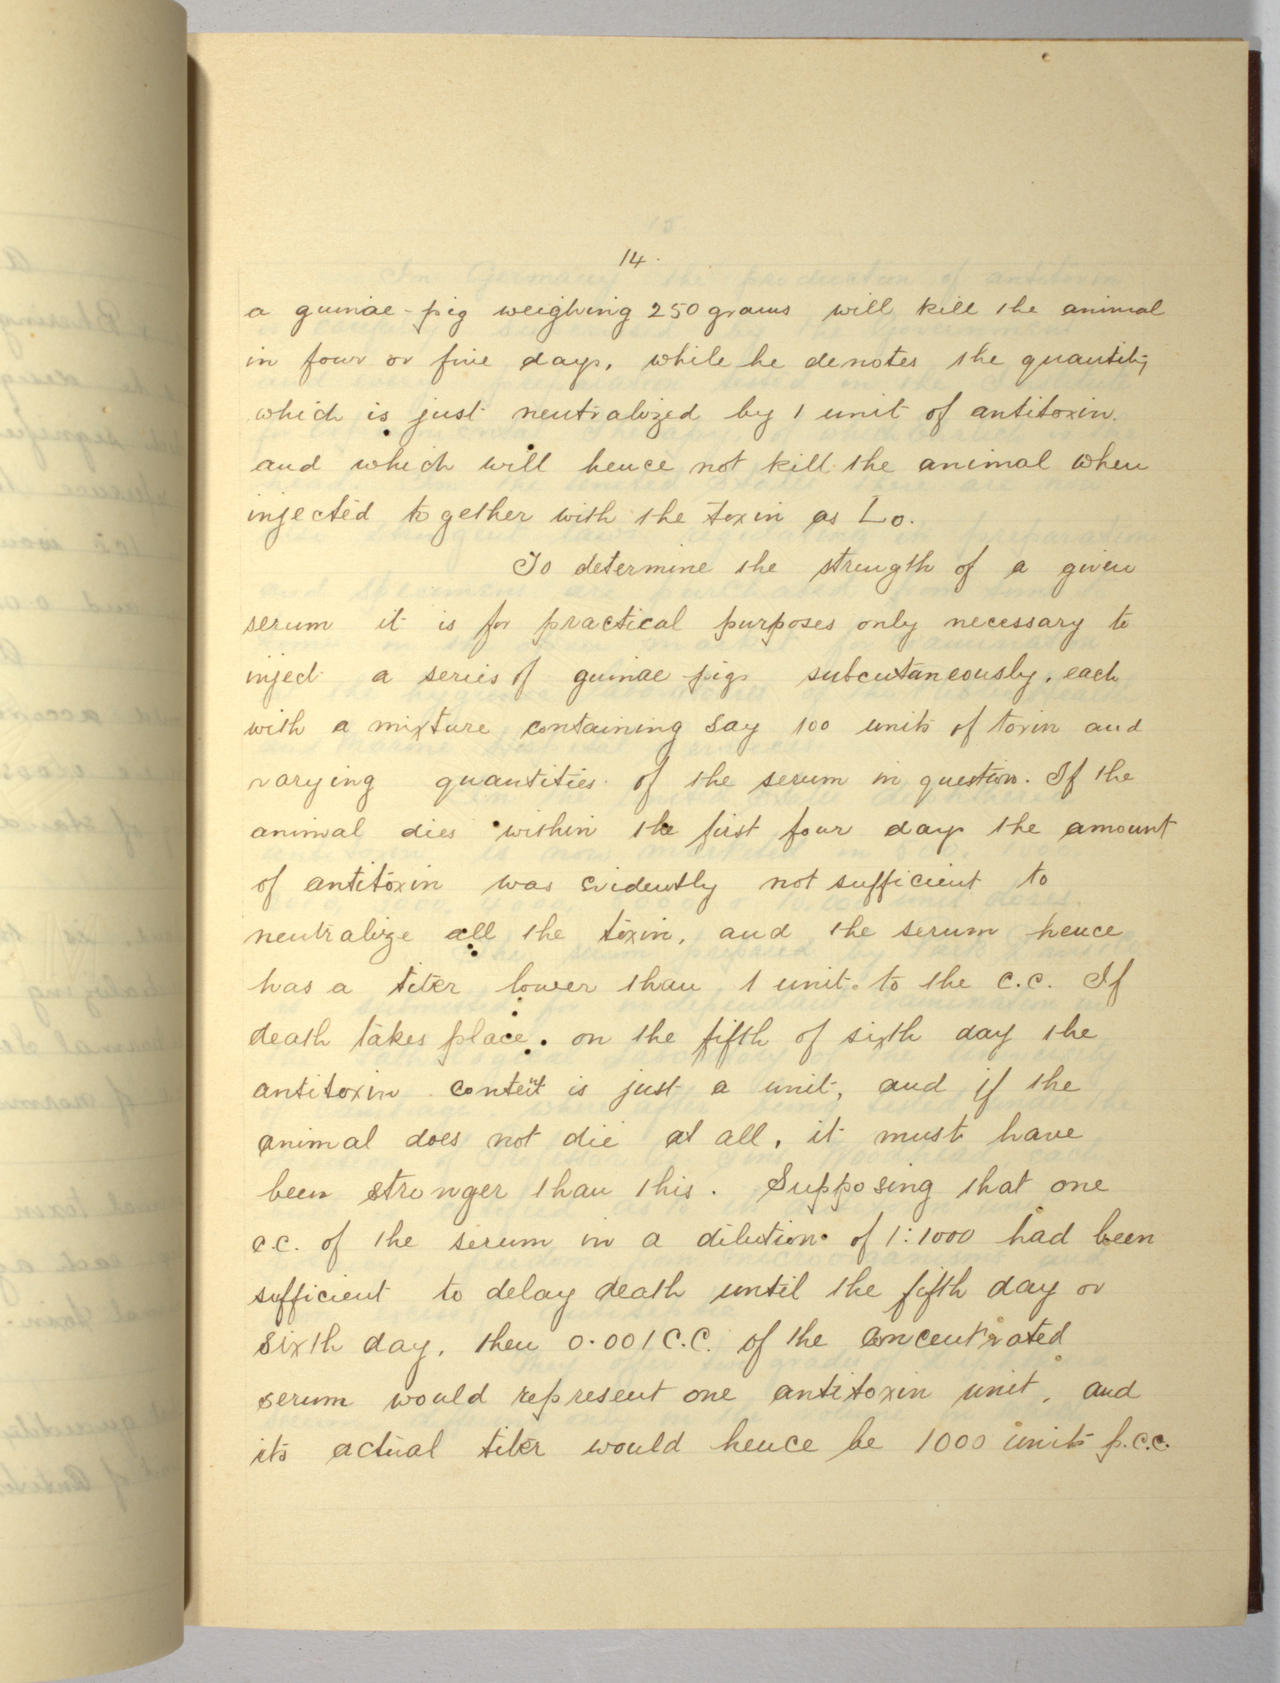 14.
a guinae-pig weighing 250 grams will kill the animal
in four or five days, while he denotes the quantity
which is just neutralized by 1 unit of antitoxin.
and which will hence not kill the animal when
injected together with the toxin as Lo.
To determine the strength of a given
serum it is for practical purposes only necessary to
inject a series of guinae pigs subcutaneously, each
with a mixture containing say 100 units of toxin and
varying quantities of the serum in question. If the
animal dies within the first four days the amount
of antitoxin was evidently not sufficient to
neutralize all the toxin, and the serum hence
has a titer lower than 1 unit to the c.c. If
death takes place. on the fifth of sixth day the
antitoxin content is just a unit, and if the
animal does not die at all, it must have
been stronger than this. Supposing that one
c.c. of the serum in a dilution of 1:1000 had been
sufficient to delay death until the fifth day or
sixth day, then 0.001 C.C. of the concentrated
serum would represent one antitoxin unit, and
its actual titer would hence be 1000 units p.c.c.